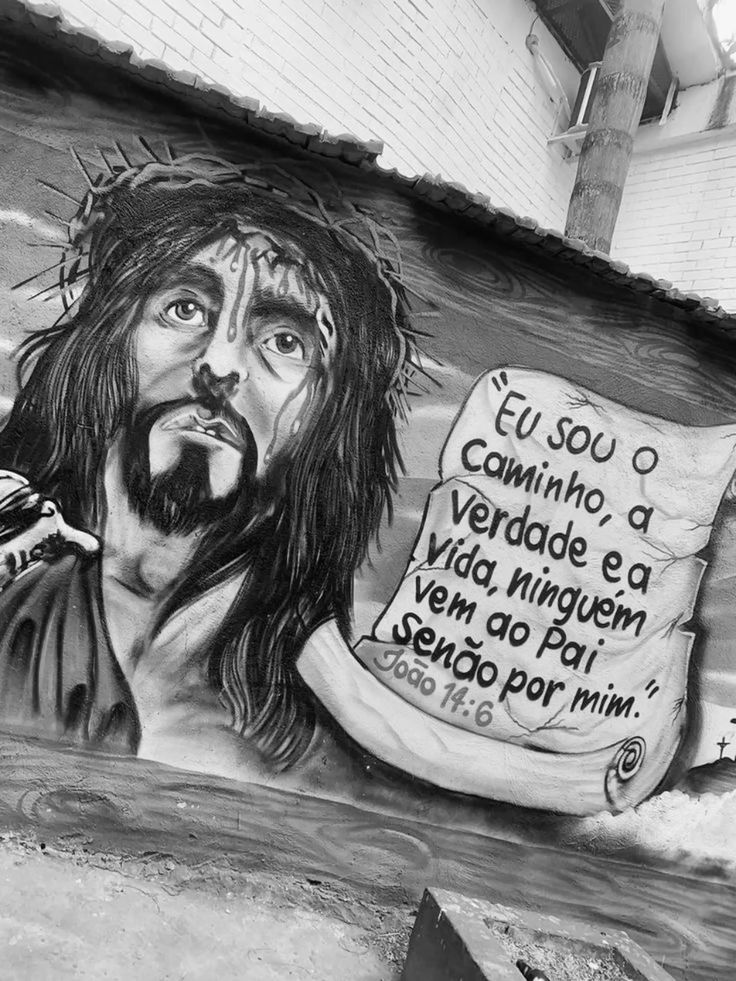 "Eu sou o
Caminho, a
Verdade e a
Vida, ninguém
vem ao Pai
Senão por mim."
João 14:6